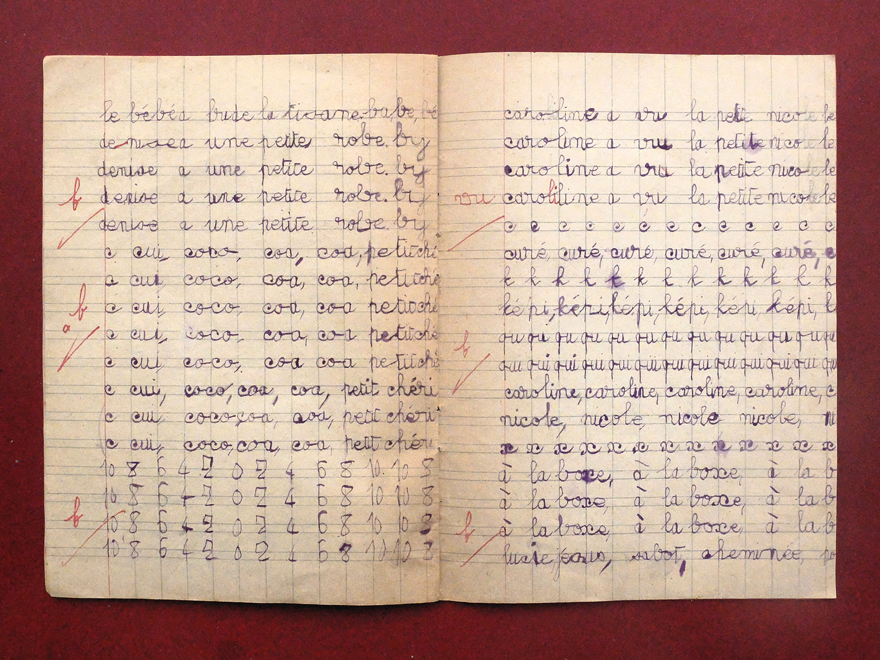 le bébé a bu de la tisane. ba, be, bé
denise a une petite robe. bij
denise a une petite robe. bij
b denise a une petite robe. bij
denise a une petite robe. bij
c cui, coco, coa, coa, petit ché
c cui, coco, coa, coa, petit ché
b c cui, coco, coa, coa petit ché
a c cui, coco, coa, coa petit ché
c cui, coco, coa coa petit ché
c cui, coco, coa, coa, petit chéri
c cui, coco, coa, coa, petit chéri
c cui, coco, coa, coa, petit chéri
10 8 6 4 2 0 2 4 6 8 10. 10 8
10 8 6 4 2 0 2 4 6 8 10 10 8
b 10 8 6 4 2 0 2 4 6 8 10 10 8
10 8 6 4 2 0 2 4 6 8 10 10 8
caroline a vu la petite nicole le
caroline a vu la petite nicole le
caroline a vu la petite nicole le
vu caroline a vu la petite nicole le
c c c c c c c c c c c c c
curé, curé, curé, curé, curé, c
k k k k k k k k k k k k k
képi, képi, képi, képi, képi, k
b qu qu qu qu qu qu qu qu qu qu qu qu qu
qui qui qui qui qui qui qui qui qui qui qui qui qui
caroline, caroline, caroline, caroline, c
nicole, nicole, nicole nicole, n
x x x x x x x x x x x x x
à la boxe, à la boxe, à la b
à la boxe, à la boxe, à la b
b à la boxe, à la boxe, à la b
lucie jésus, sabot, cheminée, po